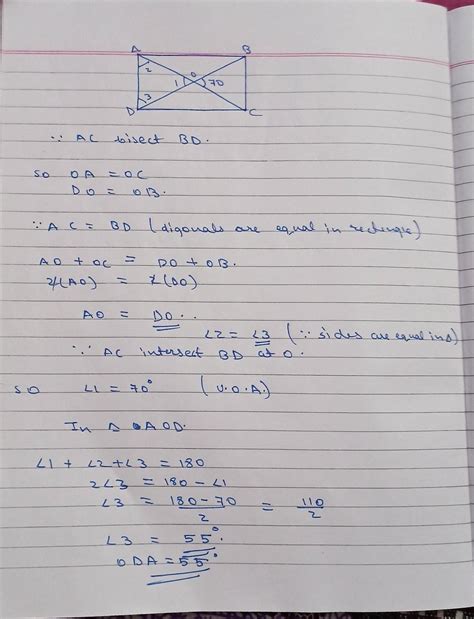 A B
2 1 O 70
3
D C
∵ AC bisect BD.
so OA = OC
DO = OB.
∵ AC = BD (digonals are equal in rectangle)
AO + OC = DO + OB.
2(AO) = 2(DO)
AO = DO..
∠2 = ∠3 (∵ sides are equal in Δ)
∵ AC intersect BD at O.
so ∠1 = 70° (V.O.A.)
In Δ AOD.
∠1 + ∠2 + ∠3 = 180
2∠3 = 180 - ∠1
∠3 = 180 - 70 / 2 = 110 / 2
∠3 = 55°.
ODA = 55°